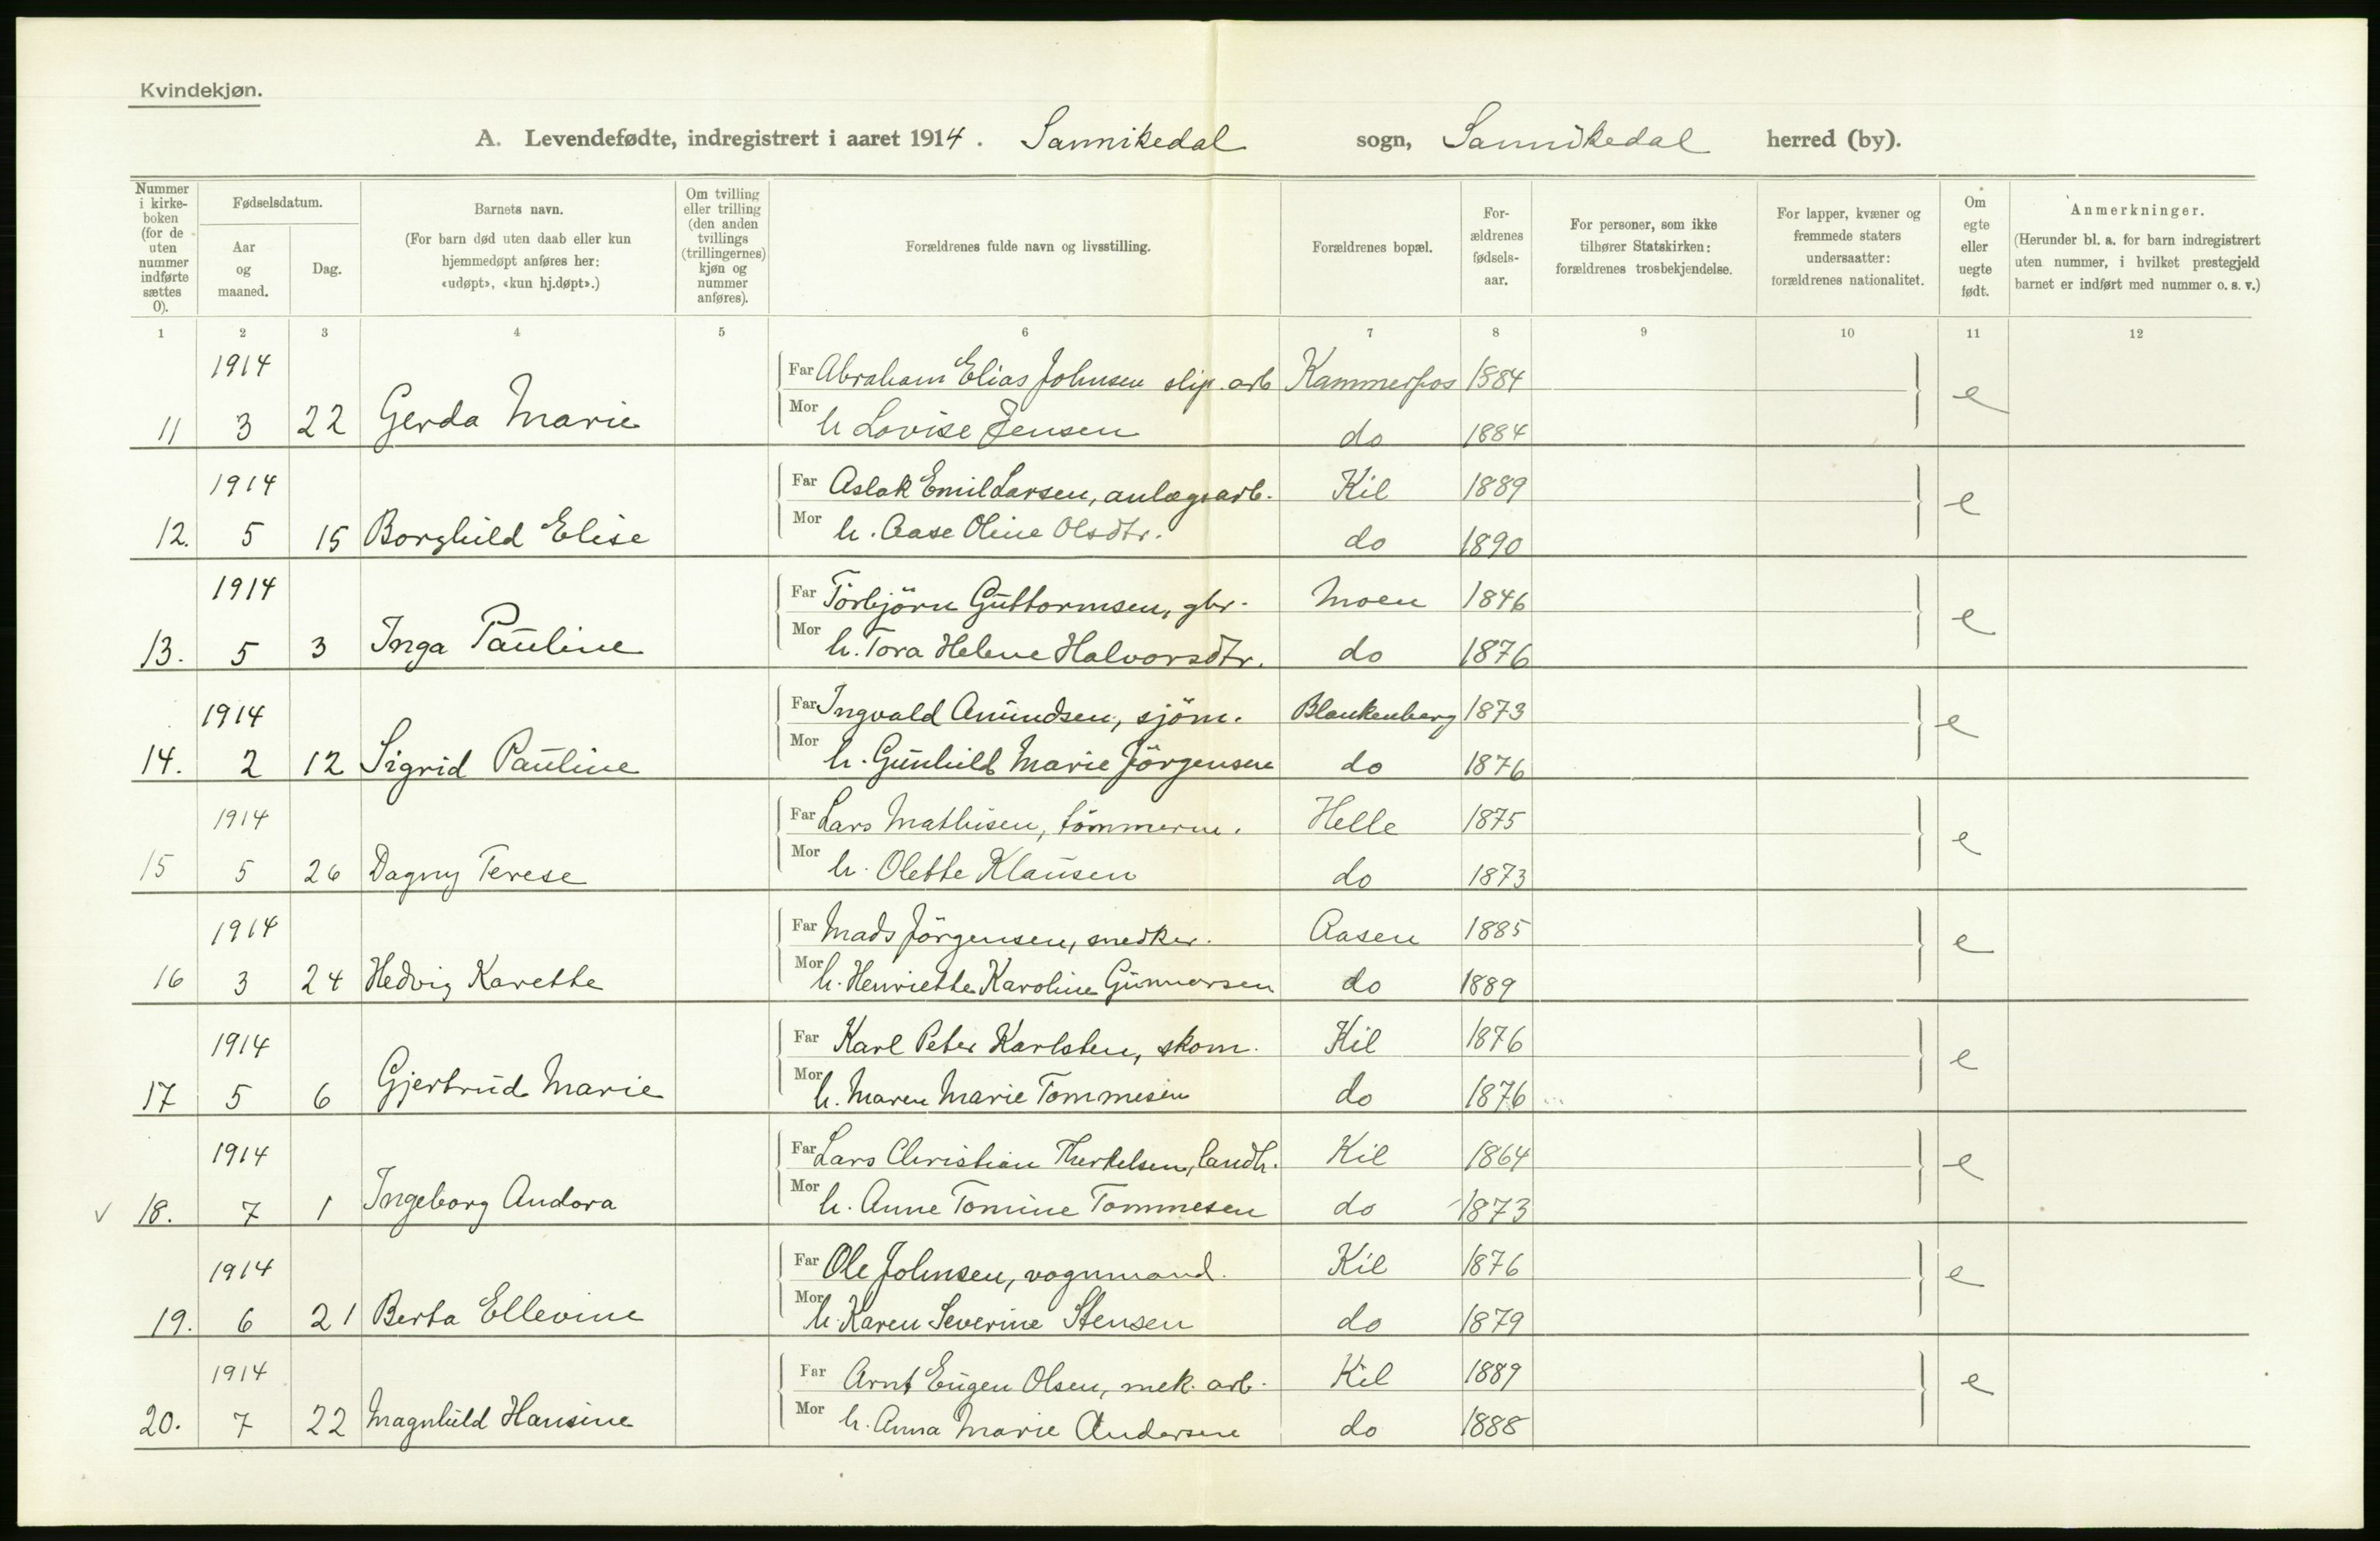 Kvindekjøn.
A. Levendefødte, indregistrert i aaret 1914. Sannikedal sogn, Sannikedal herred (by).
Nummer i kirkeboken (for de uten nummer indførte sættes 0).
Fødselsdatum.
Aar og maaned.
Dag.
Barnets navn.
(For barn død uten daab eller kun hjemmedøpt anføres her: «udøpt», «kun hj.døpt».)
Om tvilling eller trilling (den anden tvillings (trillingernes) kjøn og nummer anføres).
Forældrenes fulde navn og livsstilling.
Forældrenes bopæl.
Forældrenes fødselsaar.
For personer, som ikke tilhører Statskirken: forældrenes trosbekjendelse.
For lapper, kvæner og fremmede staters undersaatter: forældrenes nationalitet.
Om egte eller uegte født.
Anmerkninger.
(Herunder bl. a. for barn indregistrert uten nummer, i hvilket prestegjeld barnet er indført med nummer o. s. v.)
1 2 3 4 5 6 7 8 9 10 11 12
1914 Far Abraham Elias Johnsen slip. arb Kammerfos 1884 e
11 3 22 Gerda Marie Mor h Lovise Jensen do 1884
1914 Far Aslak Emil Larsen, anlægsarb. Kil 1889 e
12. 5 15 Borghild Elise Mor h. Aase Oline Olsdtr. do 1890
1914 Far Torbjörn Guttormsen, gbr. Moen 1846 e
13. 5 3 Inga Pauline Mor h. Tora Helene Halvorsdtr. do 1876
1914 Far Ingvald Amundsen, sjöm. Blankenberg 1873 e
14. 2 12 Sigrid Pauline Mor h. Gunhild Marie Jörgensen do 1876
1914 Far Lars Mathisen, tömmerm. Helle 1875 e
15 5 26 Dagny Terese Mor h. Olette Klausen do 1873
1914 Far Mads Jörgensen, snedker. Aasen 1885 e
16 3 24 Hedvig Karette Mor h. Henriette Karoline Gunnarsen do 1889
1914 Far Karl Peter Karlsten, skom. Kil 1876 e
17 5 6 Gjertrud Marie Mor h. Maren Marie Tommesen do 1876
1914 Far Lars Christian Therkelsen, landh. Kil 1864 e
v 18. 7 1 Ingeborg Andora Mor h. Anne Tomine Tommesen do 1873
1914 Far Ole Johnsen, vognmand. Kil 1876 e
19. 6 21 Berta Ellevine Mor h. Karen Severine Stensen do 1879
1914 Far Arnt Eugen Olsen, mek. arb. Kil 1889 e
20. 7 22 Magnhild Hansine Mor h. Anna Marie Andersen do 1888